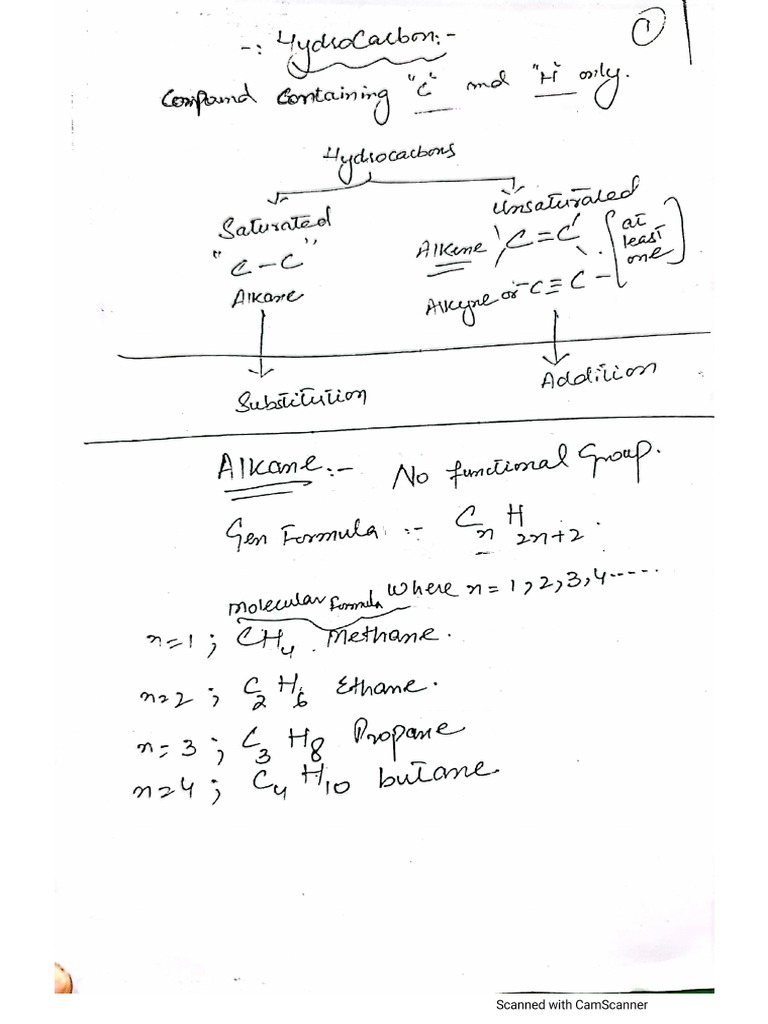 -: HydroCarbon:-
①
Compound Containing "C" and "H" only.
Hydrocarbons
Saturated
Unsaturated
"C-C"
Alkene C=C
[at least one]
Alkane
Alkyne or -C≡C-
Substitution
Addition
Alkane:- No functional Group.
Gen Formula :- CnH2n+2.
molecular formula where n=1,2,3,4-----
n=1; CH4. Methane.
n=2; C2H6 Ethane.
n=3; C3H8 Propane
n=4; C4H10 butane.
Scanned with CamScanner